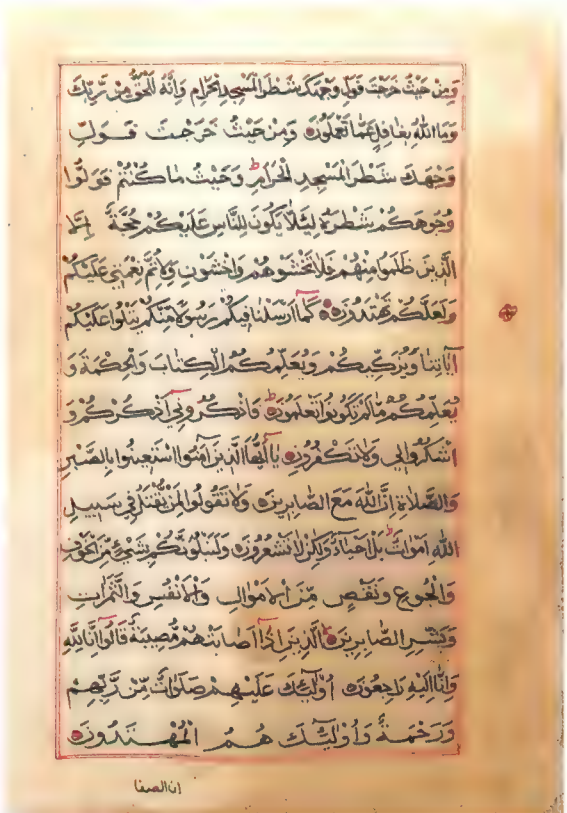 وَمِنْ حَيْثُ خَرَجْتَ فَوَلِّ وَجْهَكَ شَطْرَ الْمَسْجِدِ الْحَرَامِ وَإِنَّهُ لَلْحَقُّ مِنْ رَّبِّكَ
وَمَا اللّٰهُ بِغَافِلٍ عَمَّا تَعْمَلُونَ وَمِنْ حَيْثُ خَرَجْتَ فَوَلِّ
وَجْهَكَ شَطْرَ الْمَسْجِدِ الْحَرَامِ ط وَحَيْثُ مَا كُنْتُمْ فَوَلُّوا
وُجُوهَكُمْ شَطْرَهُ لِئَلَّا يَكُونَ لِلنَّاسِ عَلَيْكُمْ حُجَّةٌ إِلَّا
الَّذِينَ ظَلَمُوا مِنْهُمْ فَلَا تَخْشَوْهُمْ وَاخْشَوْنِ وَلِأُتِمَّ نِعْمَتِي عَلَيْكُمْ
وَلَعَلَّكُمْ تَهْتَدُونَ كَمَا أَرْسَلْنَا فِيكُمْ رَسُولًا مِّنْكُمْ يَتْلُوا عَلَيْكُمْ
آيَاتِنَا وَيُزَكِّيكُمْ وَيُعَلِّمُكُمُ الْكِتَابَ وَالْحِكْمَةَ وَ
يُعَلِّمُكُمْ مَا لَمْ تَكُونُوا تَعْلَمُونَ ط فَاذْكُرُونِي أَذْكُرْكُمْ وَ
اشْكُرُوا لِي وَلَا تَكْفُرُونِ يَا أَيُّهَا الَّذِينَ آمَنُوا اسْتَعِينُوا بِالصَّبْرِ
وَالصَّلَاةِ إِنَّ اللّٰهَ مَعَ الصَّابِرِينَ وَلَا تَقُولُوا لِمَنْ يُقْتَلُ فِي سَبِيلِ
اللّٰهِ أَمْوَاتٌ ط بَلْ أَحْيَاءٌ وَلٰكِنْ لَا تَشْعُرُونَ وَلَنَبْلُوَنَّكُمْ بِشَيْءٍ مِّنَ الْخَوْفِ
وَالْجُوعِ وَنَقْصٍ مِّنَ الْأَمْوَالِ وَالْأَنْفُسِ وَالثَّمَرَاتِ
وَبَشِّرِ الصَّابِرِينَ الَّذِينَ إِذَا أَصَابَتْهُمْ مُّصِيبَةٌ قَالُوا إِنَّا لِلّٰهِ
وَإِنَّا إِلَيْهِ رَاجِعُونَ أُولٰئِكَ عَلَيْهِمْ صَلَوَاتٌ مِّنْ رَّبِّهِمْ
وَرَحْمَةٌ وَأُولٰئِكَ هُمُ الْمُهْتَدُونَ
ان الصفا